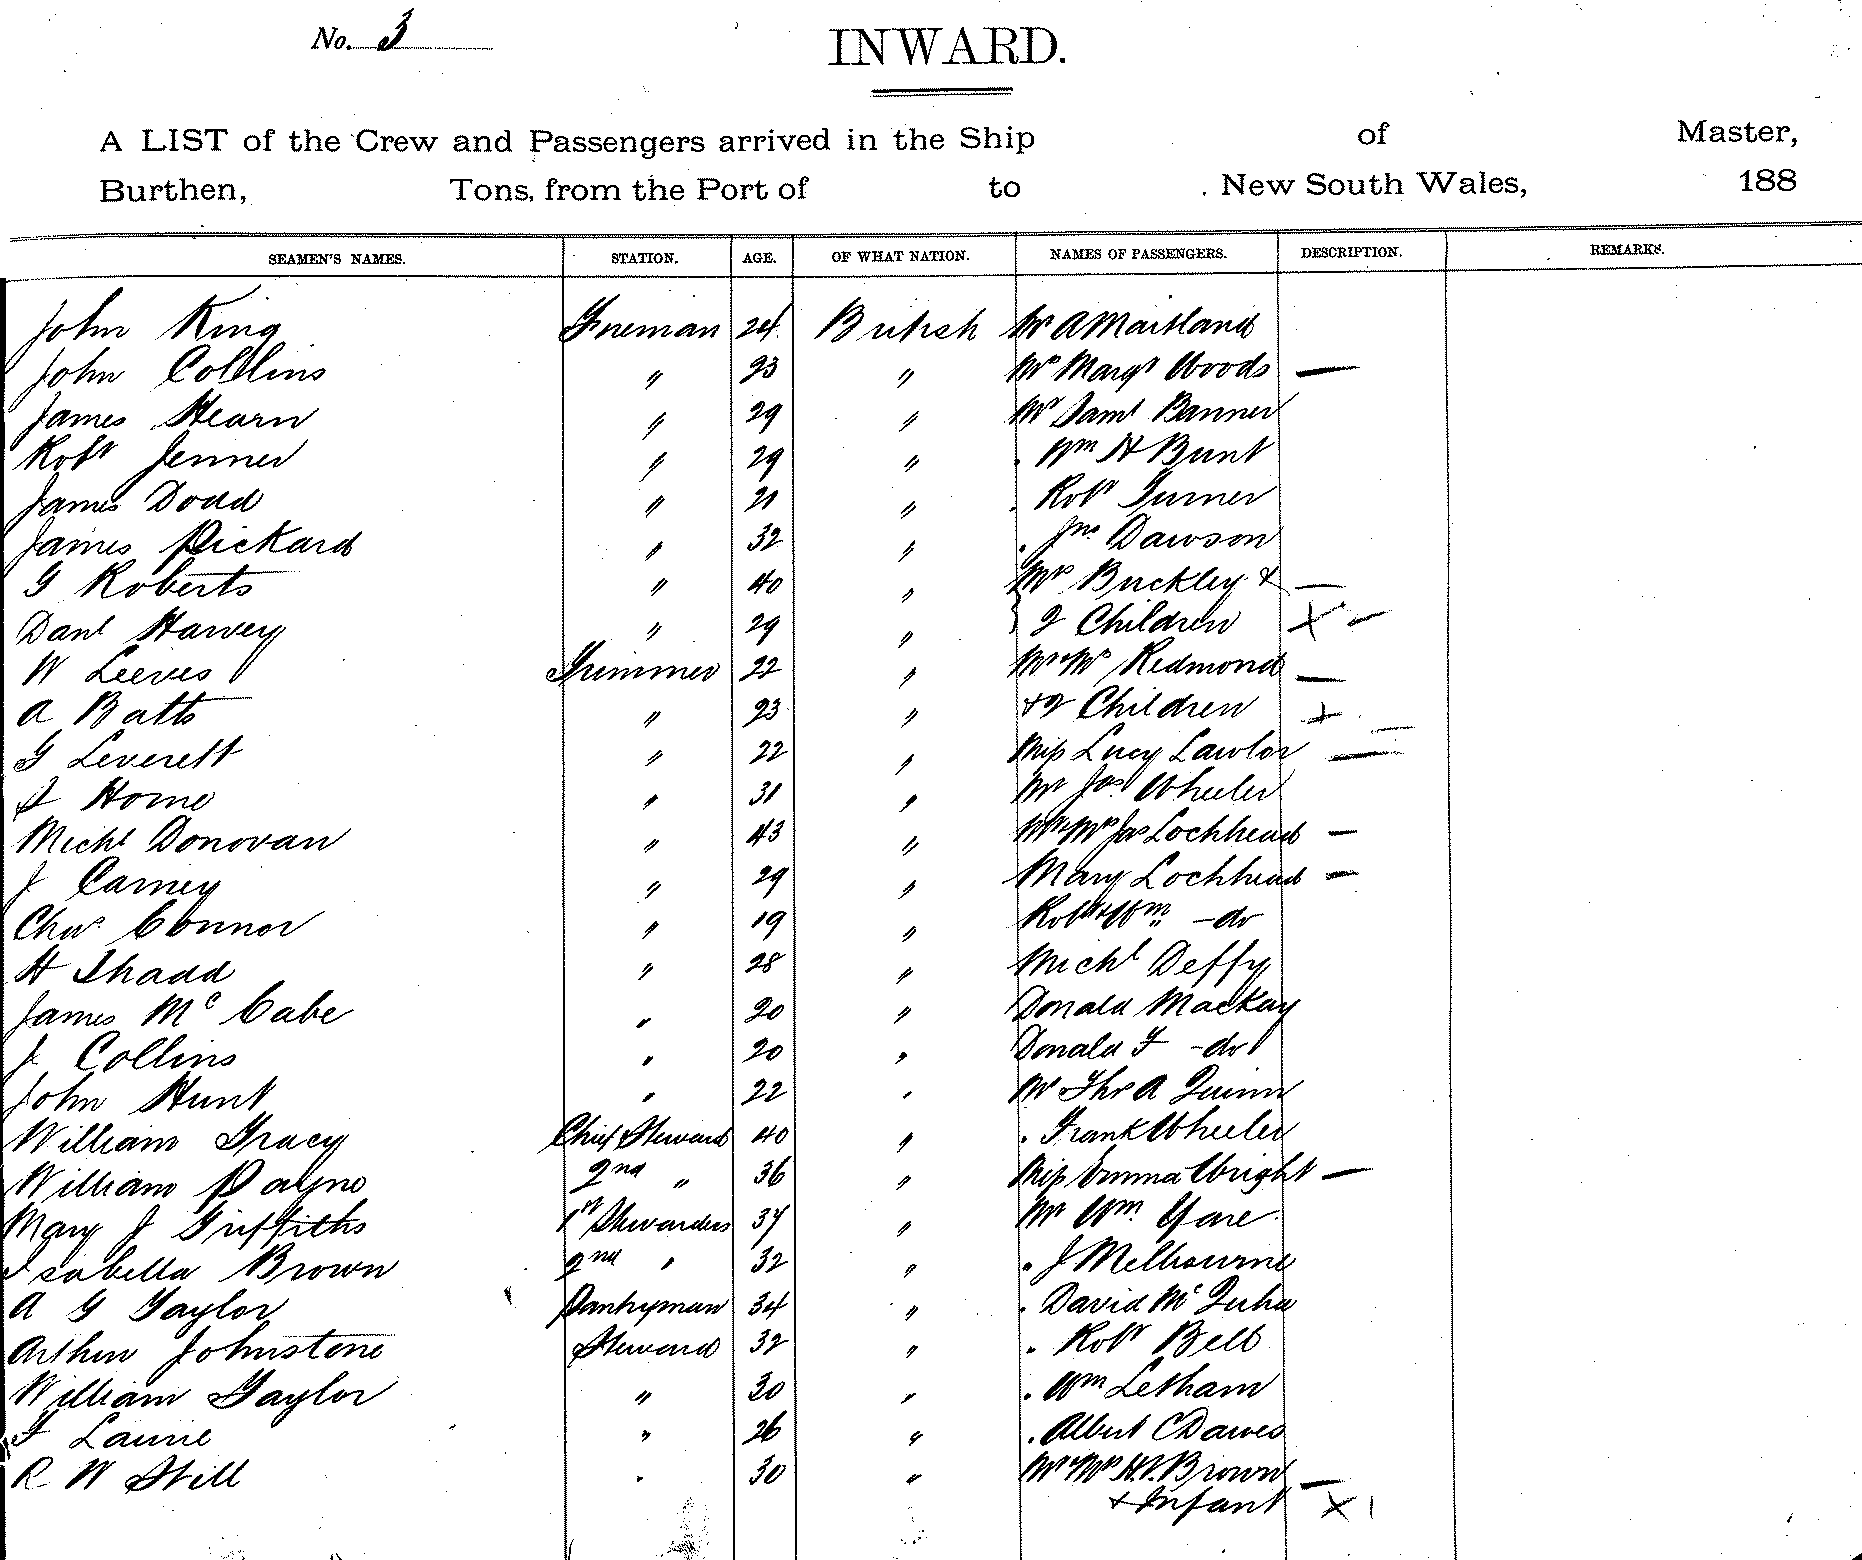 No. 3
INWARD.
A LIST of the Crew and Passengers arrived in the Ship of Master,
Burthen, Tons, from the Port of to New South Wales, 188
SEAMEN'S NAMES. STATION. AGE. OF WHAT NATION. NAMES OF PASSENGERS. DESCRIPTION. REMARKS.
John King Fireman 24 British Mr A Maitland
John Collins " 23 " Mrs Margt Woods —
James Hearn " 29 " Mr Saml Banner
Robt Jenner " 29 " . Wm H Bunt
James Dodd " 21 " . Robt Turner
James Pickard " 32 " . Jno Dawson
G Roberts " 40 " Mrs Buckley & —
Danl Harvey " 29 " 2 Children X —
W Leeves Trimmer 22 " Mr & Mrs Redmond —
A Batts " 23 " + 2 Children X
G Leverett " 22 " Miss Lucy Lawlor —
J Horne " 31 " Mr Jas Wheeler
Michl Donovan " 43 " Mr & Mrs Jas Lochhead —
J Carney " 29 " Mary Lochhead —
Chas Connor " 19 " Robt & Wm -do
H Shadd " 28 " Michl Deffy
James Mc Cabe " 20 " Donald Mackay
J Collins " 20 " Donald F -do
John Hunt " 22 " Mr Thos A Quinn
William Tracy Chief Steward 40 " . Frank Wheeler
William Payne 2nd " 36 " Miss Emma Wright —
Mary J Griffiths 1st Stewardess 37 " Mr Wm Yare
Isabella Brown 2nd " 32 " . J Melbourne
A G Taylor Pantryman 34 " . David Mc
Arthur Johnstone Steward 32 " . Robt Bell
William Taylor " 30 " . Wm Letham
F Laurie " 26 " . Albert C Dawes
R W Still " 30 " Mr & Mrs H.V. Brown —
+ Infant X 1